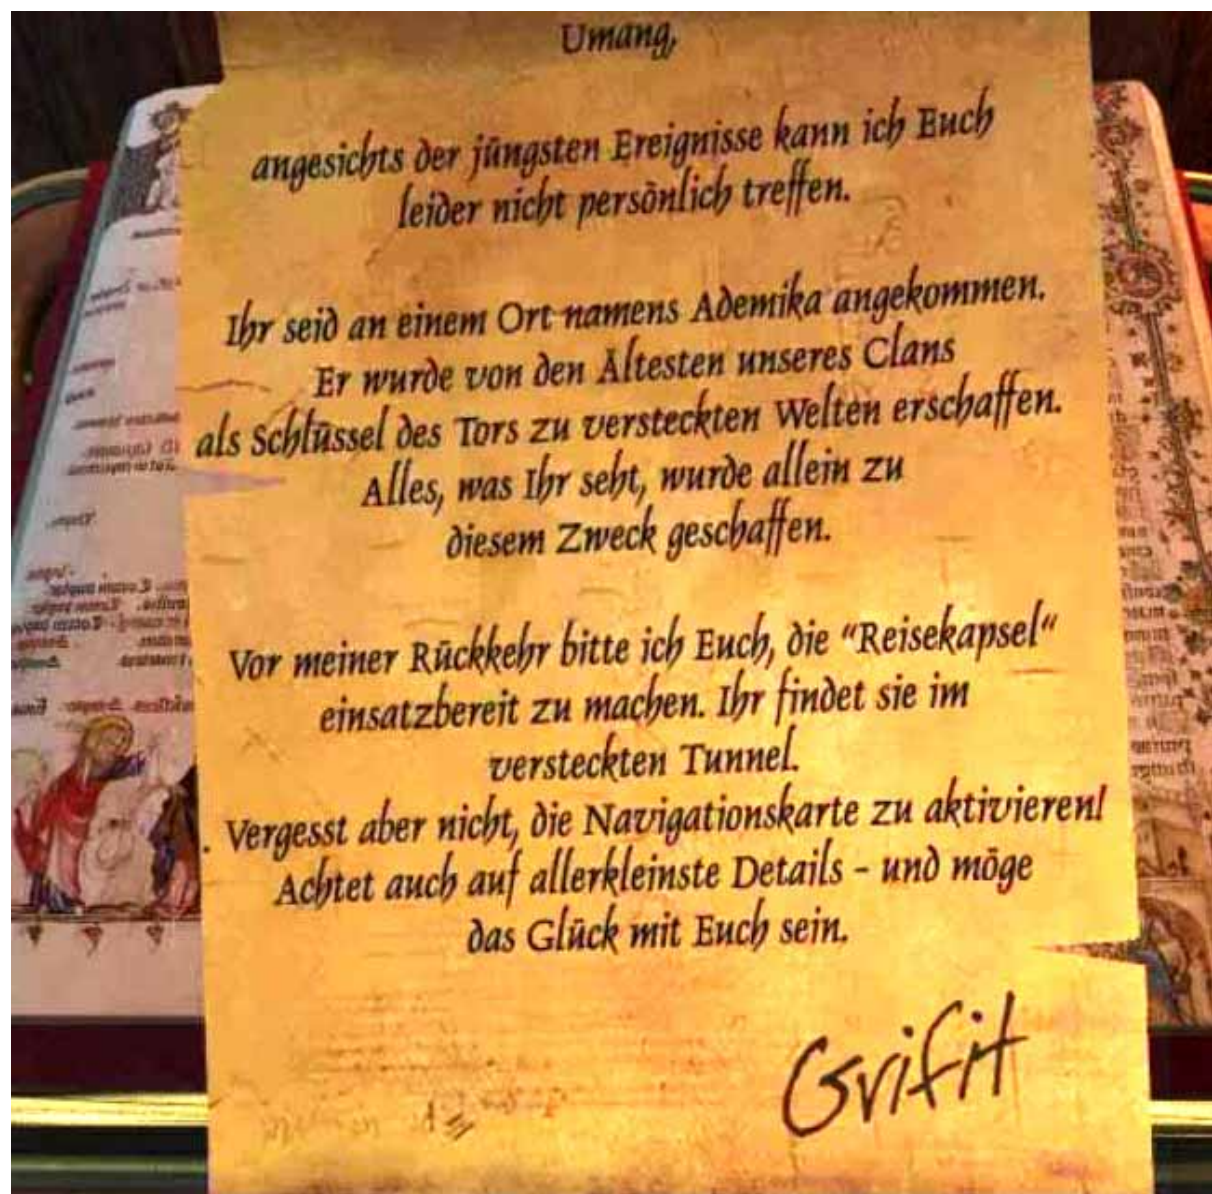 Umang,
angesichts der jüngsten Ereignisse kann ich Euch
leider nicht persönlich treffen.
Ihr seid an einem Ort namens Ademika angekommen.
Er wurde von den Ältesten unseres Clans
als Schlüssel des Tors zu versteckten Welten erschaffen.
Alles, was Ihr seht, wurde allein zu
diesem Zweck geschaffen.
Vor meiner Rückkehr bitte ich Euch, die “Reisekapsel“
einsatzbereit zu machen. Ihr findet sie im
versteckten Tunnel.
. Vergesst aber nicht, die Navigationskarte zu aktivieren!
Achtet auch auf allerkleinste Details - und möge
das Glück mit Euch sein.
Grifit